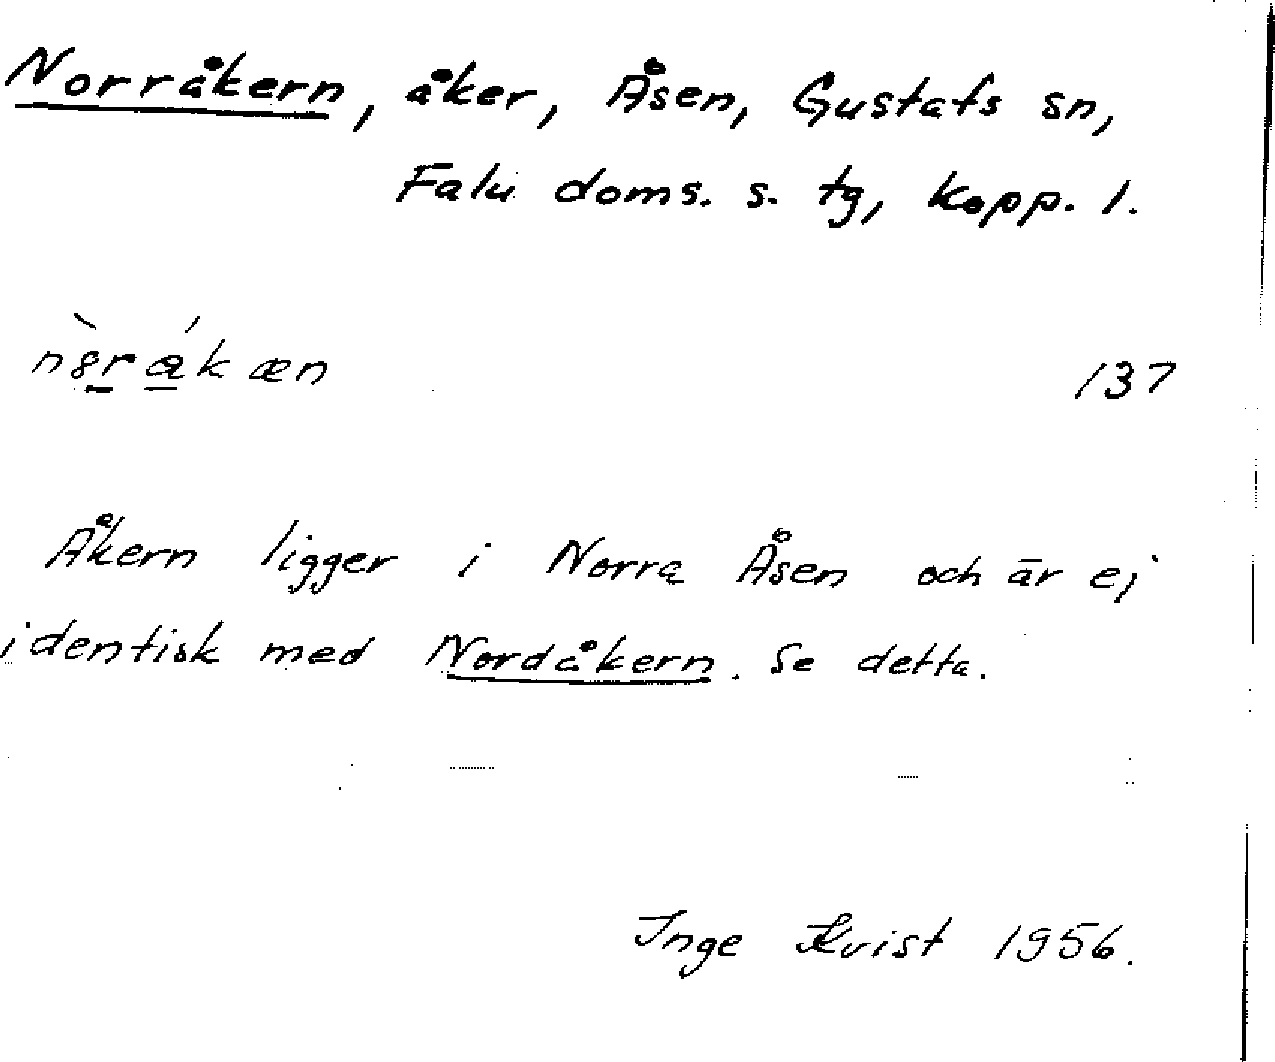 Norråkern, åker, Åsen, Gustafs sn,
Falu doms. s. tg, Kopp. l.
137
Åkern ligger i Norra Åsen och är ej
identisk med Nordåkern. Se detta.
Inge Kvist 1956.